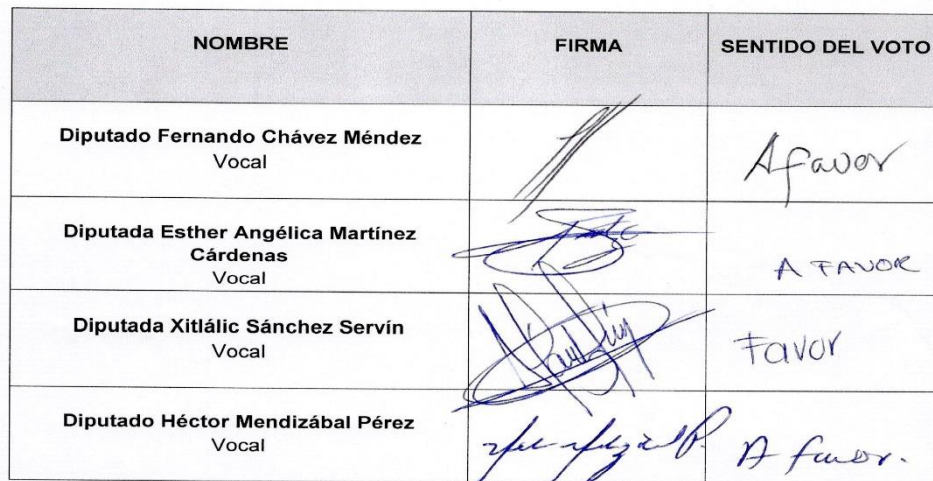 NOMBRE FIRMA SENTIDO DEL VOTO
Diputado Fernando Chávez Méndez
Vocal
A favor
Diputada Esther Angélica Martínez
Cárdenas
Vocal
A FAVOR
Diputada Xitlálic Sánchez Servín
Vocal
Favor
Diputado Héctor Mendizábal Pérez
Vocal
A favor.